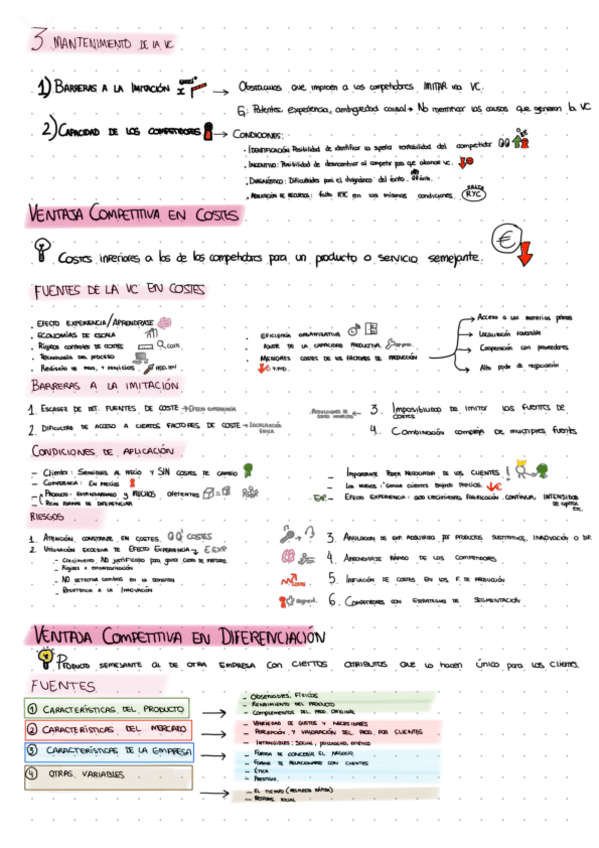 3. MANTENIMIENTO DE LA VC
1) BARRERAS A LA IMITACIÓN → Obstáculos que impiden a los competidores IMITAR una VC.
Ej: Patentes, experiencia, ambigüedad causal → No los causas que generan la VC
2) CAPACIDAD DE LOS COMPETIDORES → CONDICIONES:
· IDENTIFICACIÓN: Posibilidad de identificar la rentabilidad del competidor
· INCENTIVO: Posibilidad de al competir para que obtienen VC.
· DIAGNÓSTICO: Dificultades para el diagnóstico del éxito.
· DE RECURSOS: falta RYC en las mismas condiciones. FALTA RYC
VENTAJA COMPETITIVA EN COSTES
COSTES inferiores a los de los competidores para un producto o servicio semejante.
FUENTES DE LA VC EN COSTES
· EFECTO EXPERIENCIA/APRENDIZAJE
· ECONOMÍAS DE ESCALA
· RÍGIDOS CONTROLES DE COSTES
· TECNOLOGÍA DEL PROCESO
· REDISEÑO DE PROD. Y SERVICIOS
· EFICIENCIA ORGANIZATIVA
· AJUSTE DE LA CAPACIDAD PRODUCTIVA
· MENORES COSTES DE LOS FACTORES DE PRODUCCIÓN
→ Acceso a las materias primas
→ Localización favorable
→ Cooperación con proveedores
→ Alto poder de negociación
BARRERAS A LA IMITACIÓN
1. ESCASEZ DE DET. FUENTES DE COSTE → EFECTO EXPERIENCIA
2. DIFICULTAD DE ACCESO A CIERTOS FACTORES DE COSTE → LOCALIZACIÓN
3. IMPOSIBILIDAD DE IMITAR LAS FUENTES DE COSTES
4. COMBINACIÓN COMPLEJA DE MÚLTIPLES FUENTES
CONDICIONES DE APLICACIÓN
– CLIENTES: SENSIBLES AL PRECIO Y SIN COSTES DE CAMBIO
– COMPETENCIA: EN PRECIOS
– PRODUCTO: ESTANDARIZADO Y MUCHOS OFERENTES
– POCAS FORMAS DE DIFERENCIAR
– IMPORTANTE PODER NEGOCIADOR DE LOS CLIENTES
– Los nuevos ganan clientes bajando precios.
– EFECTO EXPERIENCIA: alto crecimiento, FABRICACIÓN CONTINUA, INTENSIDAD
RIESGOS
1. ATENCIÓN CONSTANTE EN COSTES. COSTES
2. UTILIZACIÓN EXCESIVA DE EFECTO EXPERIENCIA E.EXP
– CRECIMIENTO NO JUSTIFICADO PARA GANAR CUOTA DE MERCADO.
– RIGIDEZ E ESTANDARIZACIÓN
– NO DETECTAR CAMBIOS EN LA DEMANDA
– RESISTENCIA A LA INNOVACIÓN
3. ANULACIÓN DE EXP. ADQUIRIDA POR PRODUCTOS SUSTITUTIVOS, INNOVACIÓN O DIF.
4. APRENDIZAJE RÁPIDO DE LOS COMPETIDORES
5. INFLACIÓN DE COSTES EN LOS F. DE PRODUCCIÓN
6. COMPETIDORES CON ESTRATEGIAS DE SEGMENTACIÓN
VENTAJA COMPETITIVA EN DIFERENCIACIÓN
PRODUCTO SEMEJANTE AL DE OTRA EMPRESA CON CIERTOS ATRIBUTOS QUE LO HACEN ÚNICO PARA LOS CLIENTES.
FUENTES
① CARACTERÍSTICAS DEL PRODUCTO →
– OBSERVABLES, FÍSICOS
– RENDIMIENTO DEL PRODUCTO
– COMPLEMENTOS DEL PROD. ORIGINAL
② CARACTERÍSTICAS DEL MERCADO →
– VARIEDAD DE GUSTOS Y NECESIDADES
– PERCEPCIÓN Y VALORACIÓN DEL PROD. POR CLIENTES
– INTANGIBLES: SOCIAL, PSICOLÓGICO, ESTÉTICO
③ CARACTERÍSTICAS DE LA EMPRESA →
– FORMA DE CONCEBIR EL NEGOCIO
– FORMA DE RELACIONARSE CON CLIENTES
– ÉTICA
– PRESTIGIO
④ OTRAS VARIABLES →
– EL TIEMPO (RESPUESTA RÁPIDA)
– SOCIAL